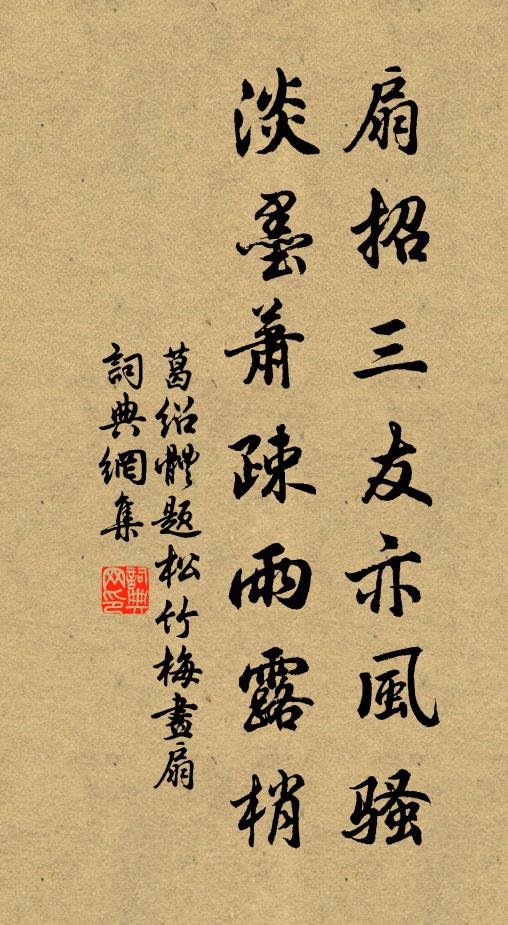 扇招三友亦風騷
淡墨蕭疎雨露梢
葛紹體題松竹梅畫扇
詞典網集
詞典网印